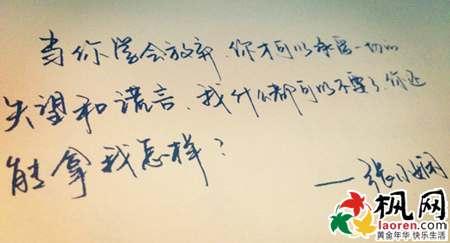 当你学会放弃、你才可以承受一切的
失望和谎言、我什么都可以不要了、你还
能拿我怎样？
——张小娴
枫网
laoren.com
黄金年华 快乐生活